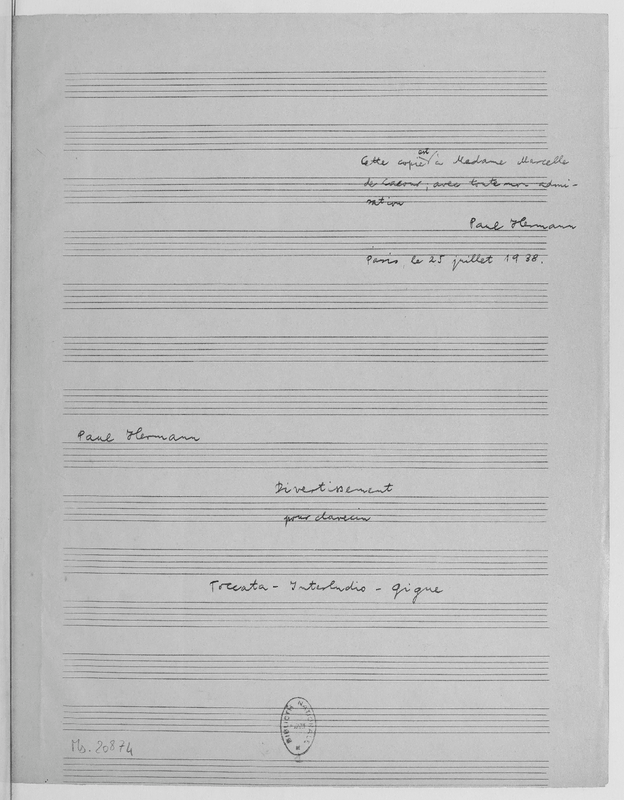 Cette copie est à Madame Marcelle
de Lacour, avec toute mon admi-
ration
Paul Hermann
Paris, le 25 juillet 1938.
Paul Hermann
Divertissement
pour clavecin
Toccata - Interludio - Gigue
Ms. 20874